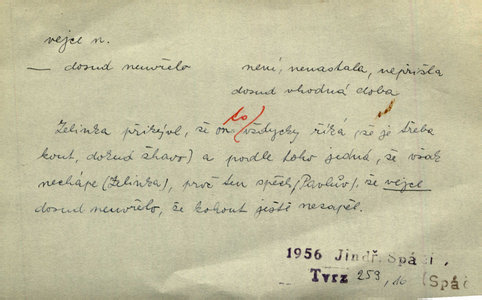 vejce n.
— dosud neuvřelo není, nenastala, nepřišla
dosud vhodná doba
to
Zelinka přikývl, že on vždycky říká, že je třeba
kout, dokud žhavo) a podle toho jedná, že však
nechápe (Zelinka), proč ten spěch (Pavlův), že vejce
dosud neuvřelo, že kohout ještě nezapěl.
1956 Jindř. Spáčil,
Tvrz 259, do (Spáč